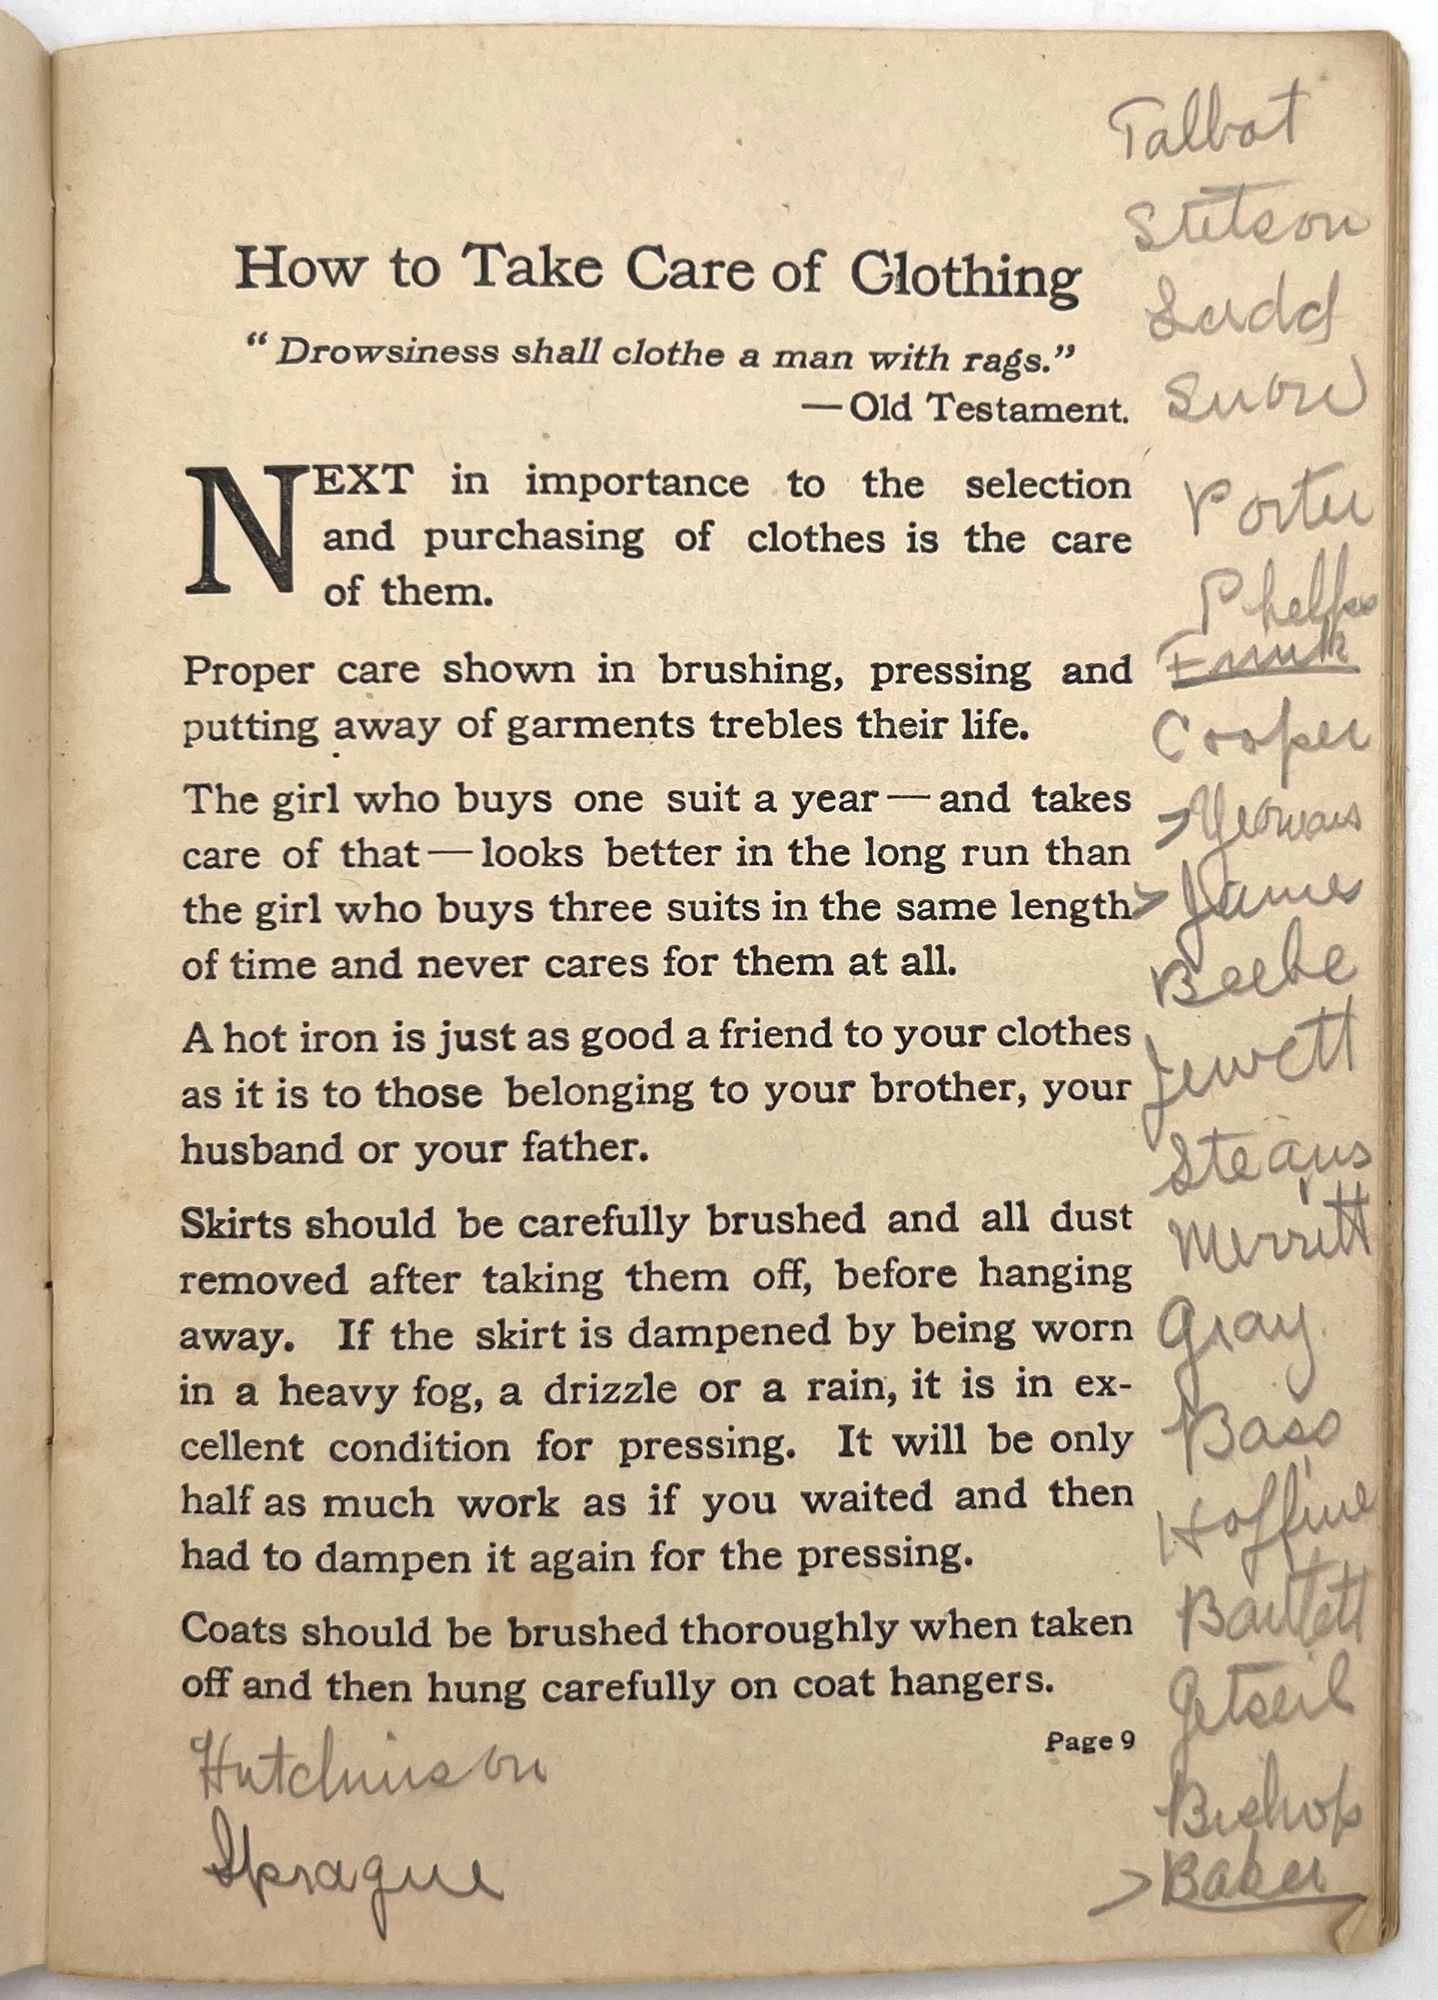 How to Take Care of Clothing
"Drowsiness shall clothe a man with rags."
—Old Testament.
NEXT in importance to the selection
and purchasing of clothes is the care
of them.
Proper care shown in brushing, pressing and
putting away of garments trebles their life.
The girl who buys one suit a year—and takes
care of that—looks better in the long run than
the girl who buys three suits in the same length
of time and never cares for them at all.
A hot iron is just as good a friend to your clothes
as it is to those belonging to your brother, your
husband or your father.
Skirts should be carefully brushed and all dust
removed after taking them off, before hanging
away. If the skirt is dampened by being worn
in a heavy fog, a drizzle or a rain, it is in ex-
cellent condition for pressing. It will be only
half as much work as if you waited and then
had to dampen it again for the pressing.
Coats should be brushed thoroughly when taken
off and then hung carefully on coat hangers.
Page 9
Hutchinson
Sprague
Talbot
Stetson
Ladd
Porter
Phelps
Cooper
> Yeomans
> James
Beebe
Jewett
Stearns
Merritt
Gray
Bass
Hoffine
Bartlett
Bishop
> Baker